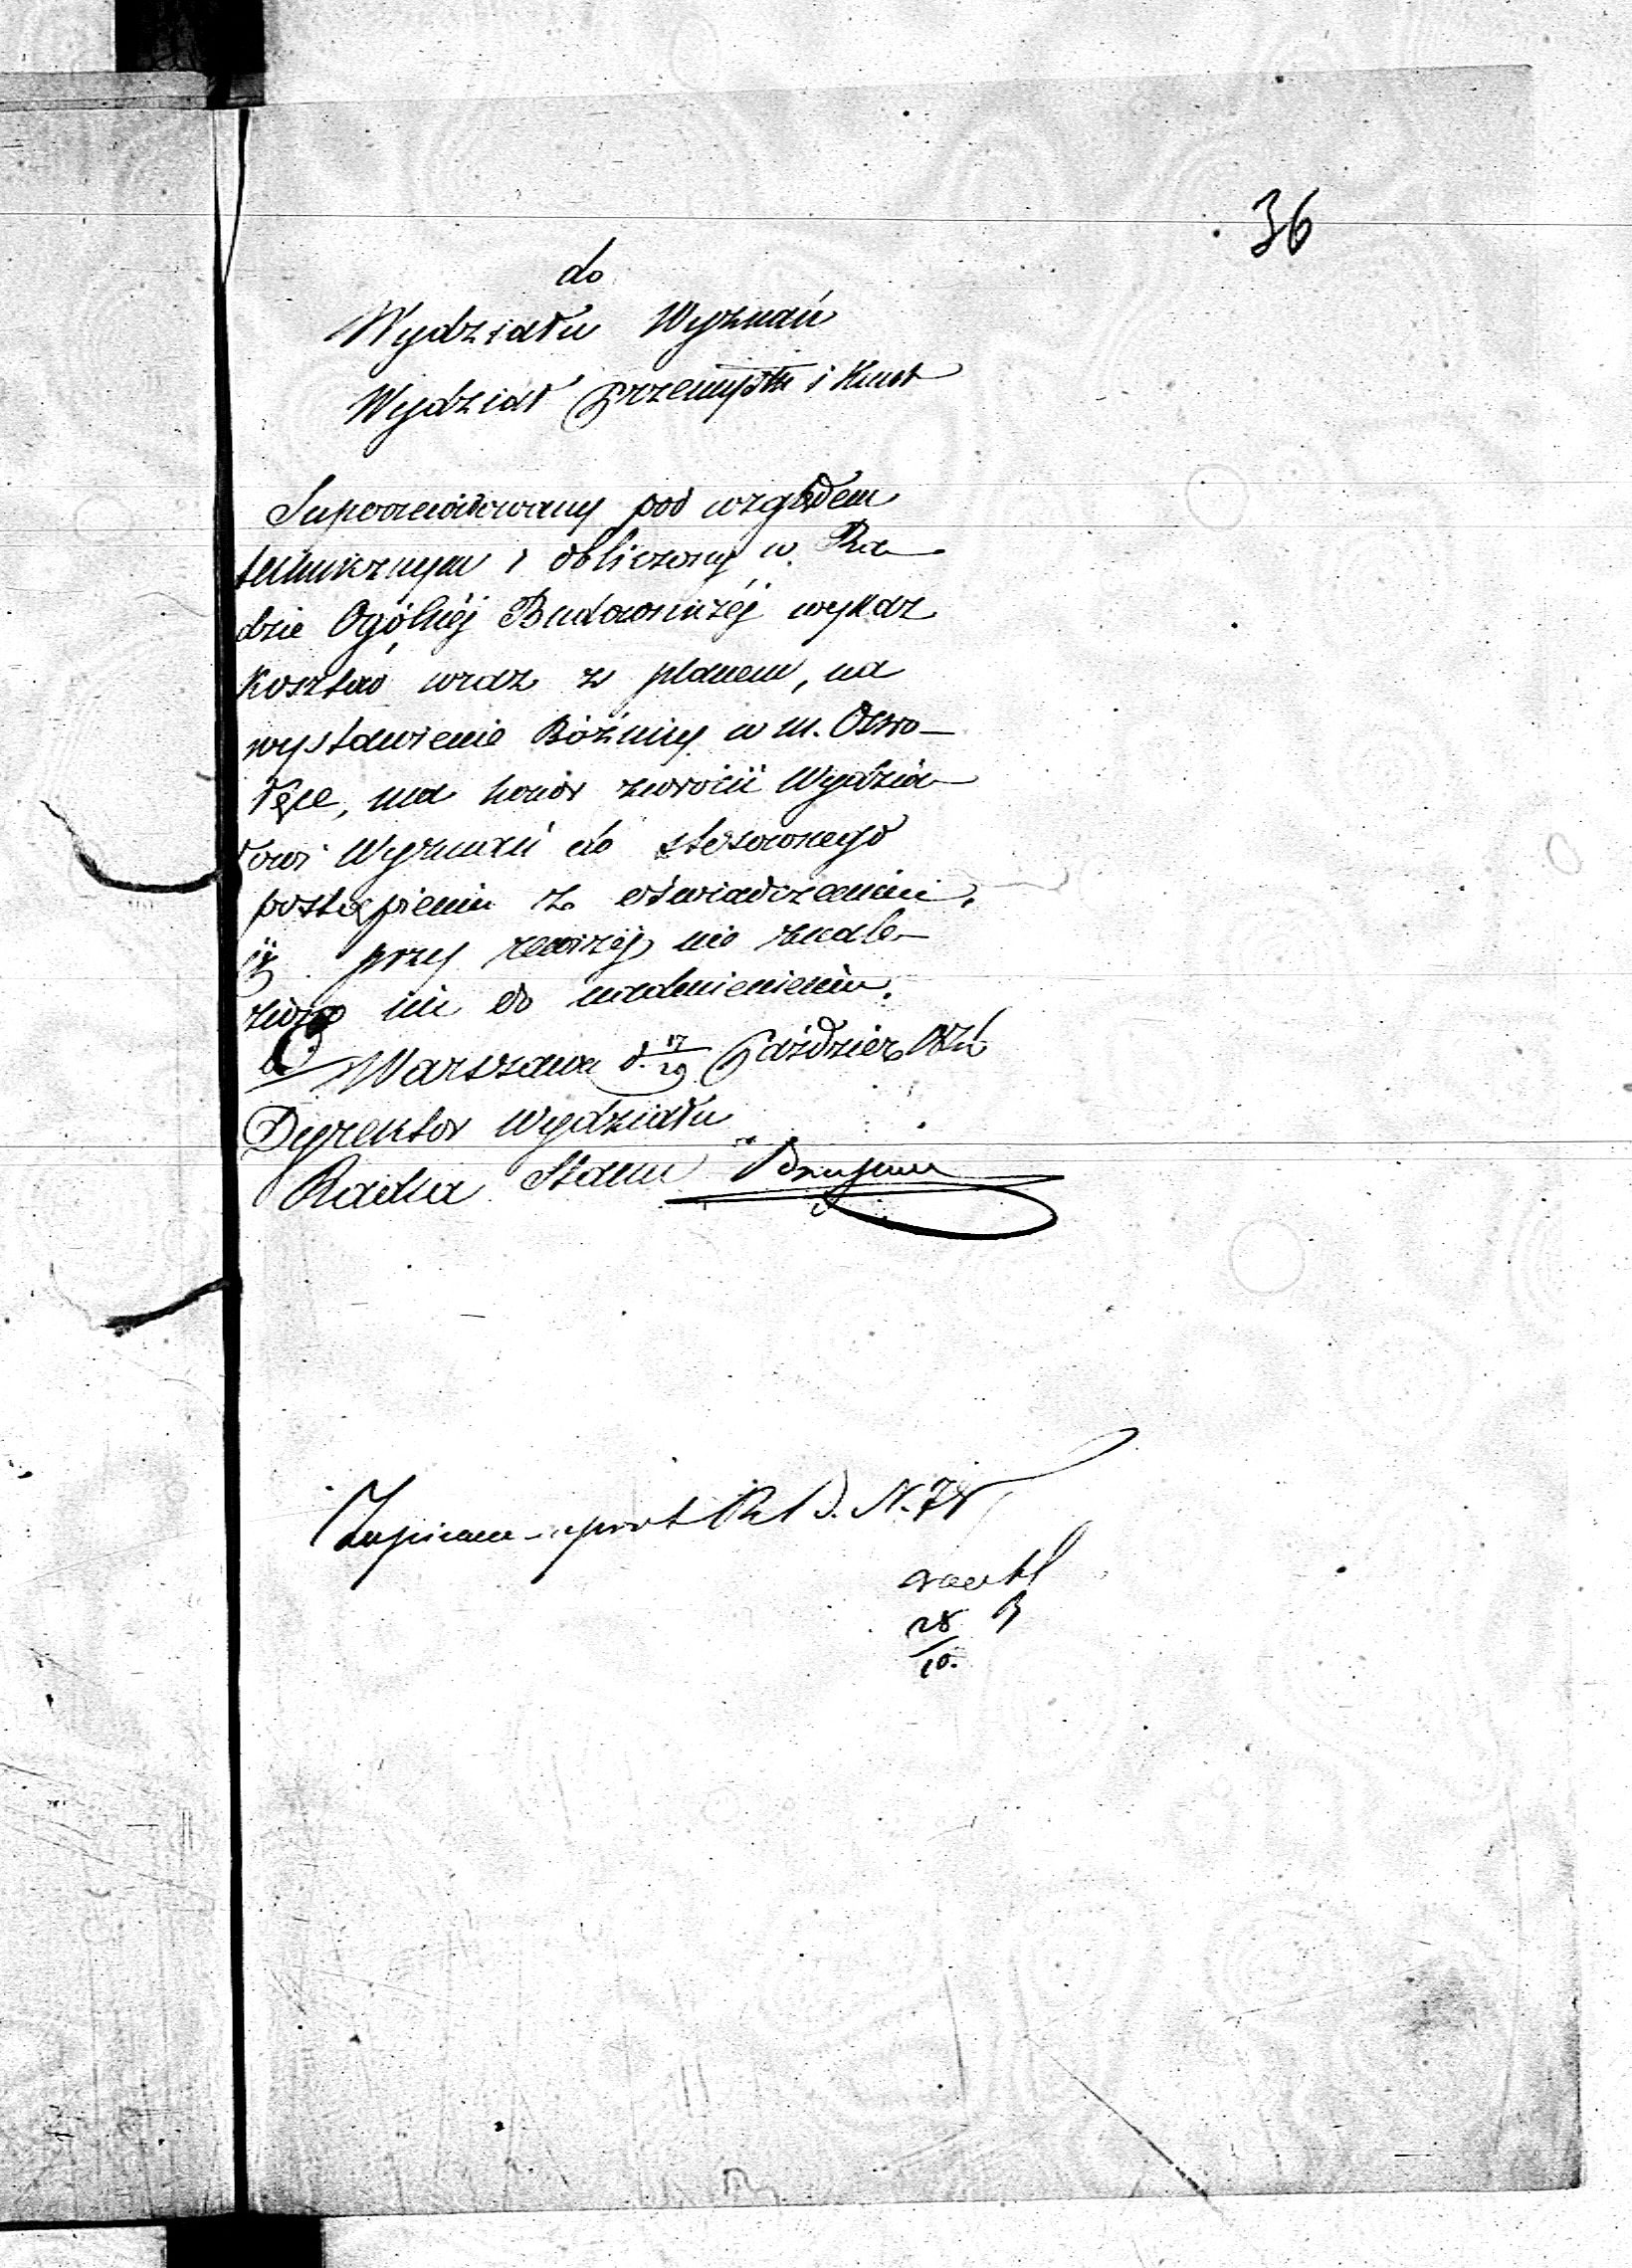 36
do
Wydziału Wyznań
Wydział przemysłu i Kunst
Superrewidowany pod względem
technicznym i obliczony w Ra-
dzie Ogólnéj Budowniczéj wykaz
Kosztów wraz z planem, na
wystawienie Bóżnicy w m. Ostro-
łęce, ma honor zwrócić Wydzia-
łowi Wyznań do stosownego
postąpienia z oświadczeniem,
iż przy rewizyi nie znale-
ziono nic do nadmienienia.
Warszawa d. 17/29 Paździer
Dyrektor Wydziału
Radca Stanu
N. 78
28
10.